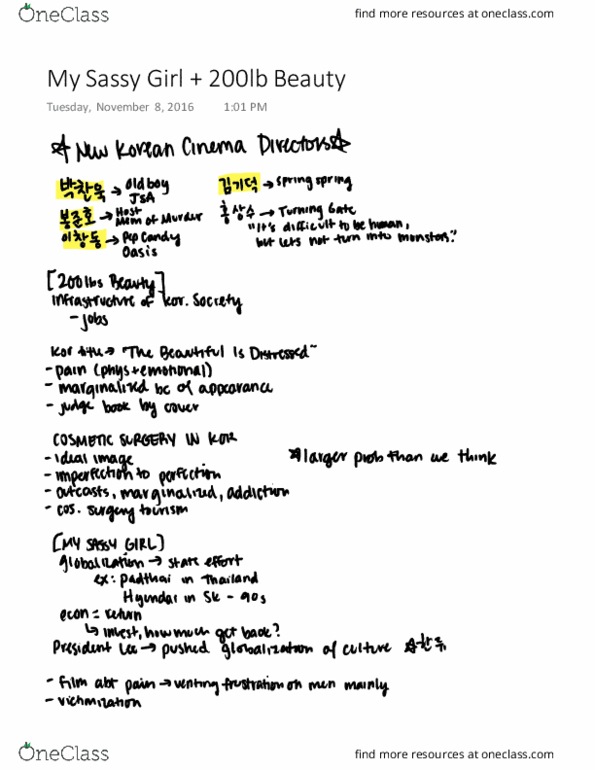 OneClass
find more resources at oneclass.com
My Sassy Girl + 200lb Beauty
Tuesday, November 8, 2016 1:01 PM
☆ New Korean Cinema Directors ☆
박찬욱 → Oldboy
JSA
김기덕 → Spring spring
봉준호 → Host
Mem of Murder
홍상수 → Turning Gate
"It's difficult to be human,
but lets not turn into monsters."
이창동 → Pep Candy
Oasis
[200lbs Beauty]
infrastructure of Kor. Society
- jobs
Kor title → "The Beautiful Is Distressed"
- pain (phys+emotional)
- marginalized bc of appearance
- judge book by cover
COSMETIC SURGERY IN KOR
- ideal image
*larger prob than we think
- imperfection to perfection
- outcasts, marginalized, addiction
- cos. surgery tourism
[MY SASSY GIRL]
globalization → state effort
ex: Padthai in Thailand
Hyundai in SK - 90s
econ = return
↳ invest, how much get back?
President Lee → pushed globalization of culture
- film abt pain → venting frustration on men mainly
- victimization
OneClass
find more resources at oneclass.com